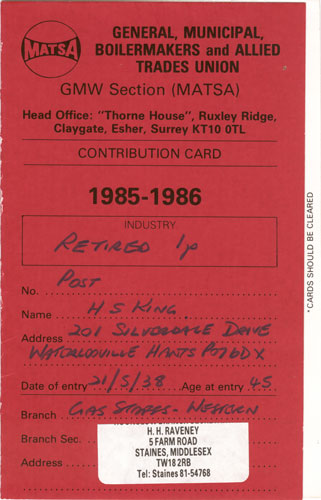 MATSA
GENERAL, MUNICIPAL,
BOILERMAKERS and ALLIED
TRADES UNION
GMW Section (MATSA)
Head Office: "Thorne House", Ruxley Ridge,
Claygate, Esher, Surrey KT10 0TL
CONTRIBUTION CARD
1985-1986
INDUSTRY
RETIRED 1p
No. POST
Name H S KING
Address 201 SILVERDALE DRIVE
WATERLOOVILLE HANTS PO7 6DX
Date of entry 21/5/38 Age at entry 45
Branch GAS STAFFS - WESTERN
Branch Sec. H. H. RAVENEY
Address 5 FARM ROAD
STAINES, MIDDLESEX
TW18 2RB
Tel: Staines 81-54768
*CARDS SHOULD BE CLEARED